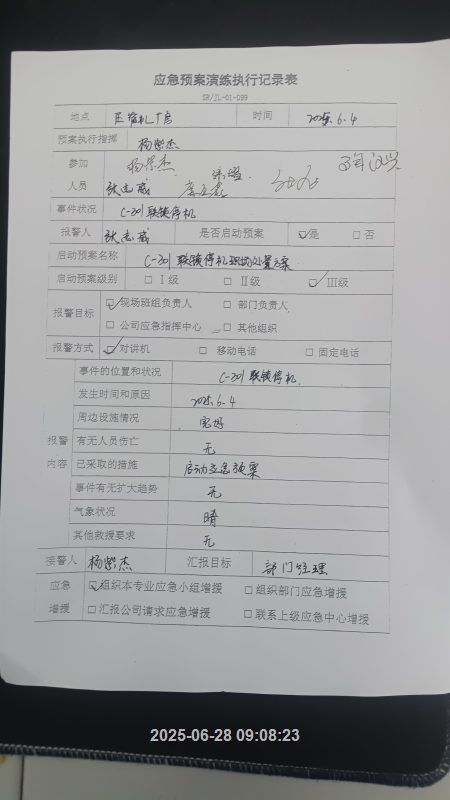 应急预案演练执行记录表
SR/JL-01-099
地点 压缩机厂房 时间 2025.6.4
预案执行指挥 杨紫杰
参加 杨紫杰
人员 张志威
事件状况 C-301联锁停机
报警人 张志威 是否启动预案 ☑是 □否
启动预案名称 C-301联锁停机现场处置方案
启动预案级别 □Ⅰ级 □Ⅱ级 ☑Ⅲ级
报警目标 ☑现场班组负责人 □部门负责人
□公司应急指挥中心 □其他组织
报警方式 ☑对讲机 □移动电话 □固定电话
事件的位置和状况 C-301联锁停机
发生时间和原因 2025.6.4
周边设施情况 完好
报警 有无人员伤亡 无
内容 已采取的措施 启动应急预案
事件有无扩大趋势 无
气象状况 晴
其他救援要求 无
接警人 杨紫杰 汇报目标 部门经理
应急 ☑组织本专业应急小组增援 □组织部门应急增援
增援 □汇报公司请求应急增援 □联系上级应急中心增援
2025-06-28 09:08:23